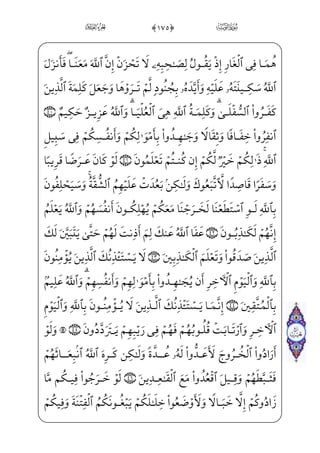 سُورَةُ التَّوْبَةِ ﴿١٧٥﴾ الجُزْءُ العَاشِرُ
هُمَا فِى ٱلْغَارِ إِذْ يَقُولُ لِصَـٰحِبِهِۦ لَا تَحْزَنْ إِنَّ ٱللَّهَ مَعَنَا ۖ فَأَنزَلَ
ٱللَّهُ سَكِينَتَهُۥ عَلَيْهِ وَأَيَّدَهُۥ بِجُنُودٍ لَّمْ تَرَوْهَا وَجَعَلَ كَلِمَةَ ٱلَّذِينَ
كَفَرُوا۟ ٱلسُّفْلَىٰ ۗ وَكَلِمَةُ ٱللَّهِ هِىَ ٱلْعُلْيَا ۗ وَٱللَّهُ عَزِيزٌ حَكِيمٌ ٤٠
ٱنفِرُوا۟ خِفَافًا وَثِقَالًا وَجَـٰهِدُوا۟ بِأَمْوَٰلِكُمْ وَأَنفُسِكُمْ فِى سَبِيلِ
ٱللَّهِ ۚ ذَٰلِكُمْ خَيْرٌ لَّكُمْ إِن كُنتُمْ تَعْلَمُونَ ٤١ لَوْ كَانَ عَرَضًا قَرِيبًا
وَسَفَرًا قَاصِدًا لَّٱتَّبَعُوكَ وَلَـٰكِنۢ بَعُدَتْ عَلَيْهِمُ ٱلشُّقَّةُ ۚ وَسَيَحْلِفُونَ
بِٱللَّهِ لَوِ ٱسْتَطَعْنَا لَخَرَجْنَا مَعَكُمْ يُهْلِكُونَ أَنفُسَهُمْ وَٱللَّهُ يَعْلَمُ
إِنَّهُمْ لَكَـٰذِبُونَ ٤٢ عَفَا ٱللَّهُ عَنكَ لِمَ أَذِنتَ لَهُمْ حَتَّىٰ يَتَبَيَّنَ لَكَ
ٱلَّذِينَ صَدَقُوا۟ وَتَعْلَمَ ٱلْكَـٰذِبِينَ ٤٣ لَا يَسْتَـْٔذِنُكَ ٱلَّذِينَ يُؤْمِنُونَ
بِٱللَّهِ وَٱلْيَوْمِ ٱلْـَٔاخِرِ أَن يُجَـٰهِدُوا۟ بِأَمْوَٰلِهِمْ وَأَنفُسِهِمْ ۗ وَٱللَّهُ عَلِيمٌۢ
بِٱلْمُتَّقِينَ ٤٤ إِنَّمَا يَسْتَـْٔذِنُكَ ٱلَّذِينَ لَا يُؤْمِنُونَ بِٱللَّهِ وَٱلْيَوْمِ
ٱلْـَٔاخِرِ وَٱرْتَابَتْ قُلُوبُهُمْ فَهُمْ فِى رَيْبِهِمْ يَتَرَدَّدُونَ ٤٥ ۞ وَلَوْ
أَرَادُوا۟ ٱلْخُرُوجَ لَأَعَدُّوا۟ لَهُۥ عُدَّةً وَلَـٰكِن كَرِهَ ٱللَّهُ ٱنۢبِعَاثَهُمْ
فَثَبَّطَهُمْ وَقِيلَ ٱقْعُدُوا۟ مَعَ ٱلْقَـٰعِدِينَ ٤٦ لَوْ خَرَجُوا۟ فِيكُم مَّا
زَادُوكُمْ إِلَّا خَبَالًا وَلَأَوْضَعُوا۟ خِلَـٰلَكُمْ يَبْغُونَكُمُ ٱلْفِتْنَةَ وَفِيكُمْ